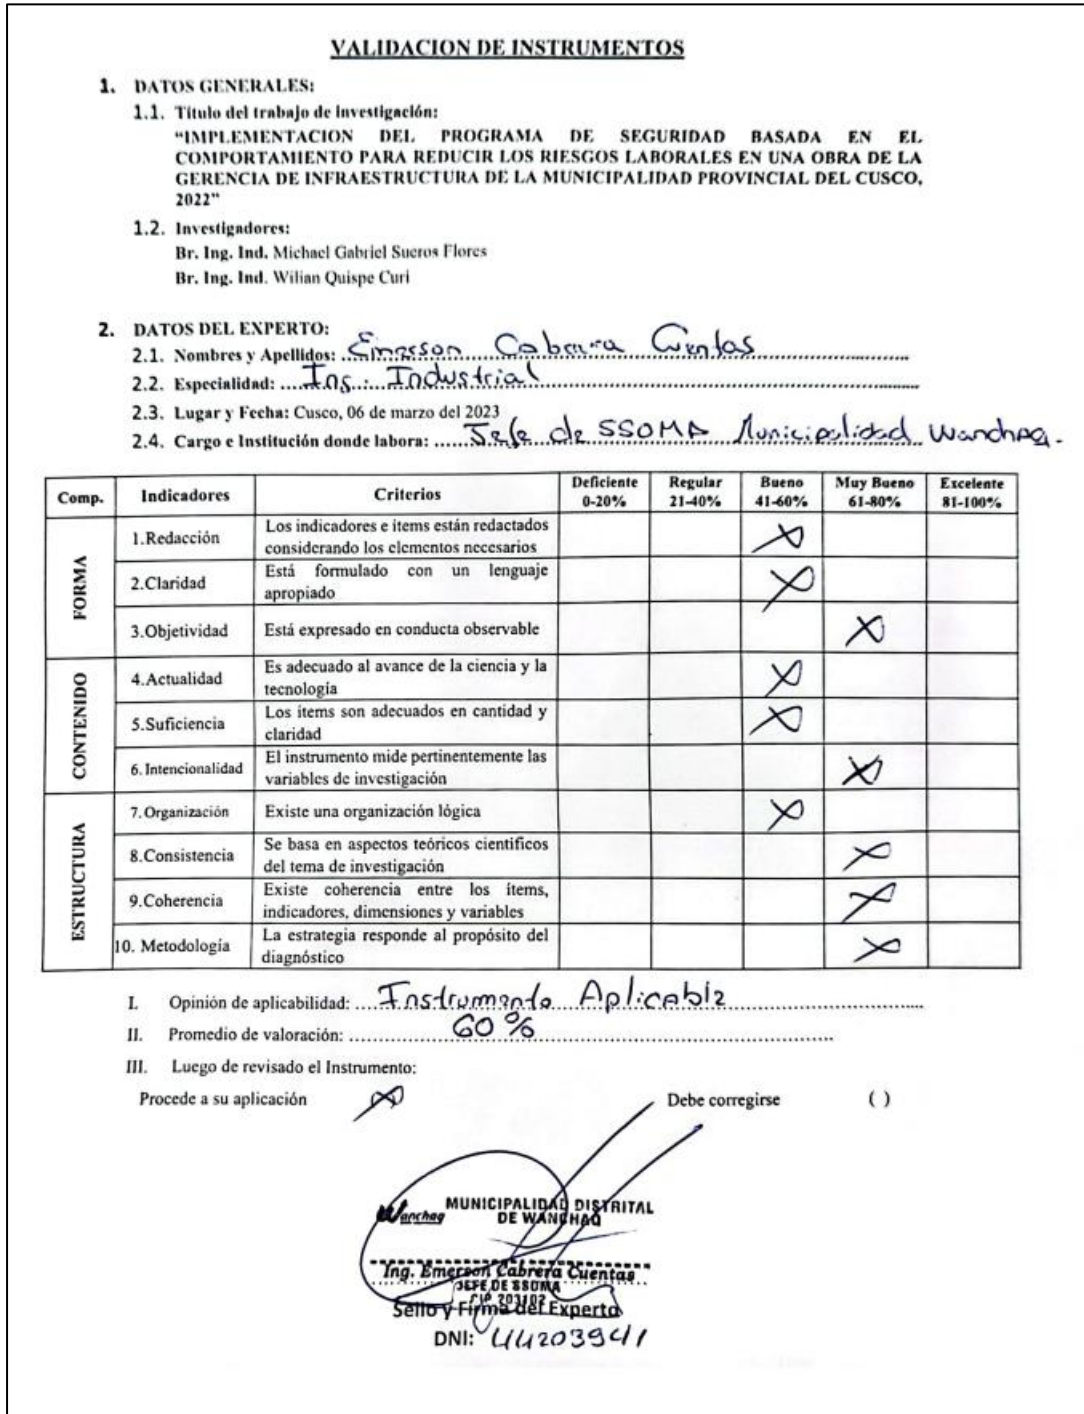 VALIDACION DE INSTRUMENTOS
1. DATOS GENERALES:
1.1. Título del trabajo de investigación:
“IMPLEMENTACION DEL PROGRAMA DE SEGURIDAD BASADA EN EL
COMPORTAMIENTO PARA REDUCIR LOS RIESGOS LABORALES EN UNA OBRA DE LA
GERENCIA DE INFRAESTRUCTURA DE LA MUNICIPALIDAD PROVINCIAL DEL CUSCO,
2022”
1.2. Investigadores:
Br. Ing. Ind. Michael Gabriel Sueros Flores
Br. Ing. Ind. Wilian Quispe Curi
2. DATOS DEL EXPERTO:
2.1. Nombres y Apellidos: Emerson Cabrera Cuentas
2.2. Especialidad: Ing. Industrial
2.3. Lugar y Fecha: Cusco, 06 de marzo del 2023
2.4. Cargo e Institución donde labora: Jefe de SSOMA Municipalidad Wanchaq.
Comp. Indicadores Criterios Deficiente 0-20% Regular 21-40% Bueno 41-60% Muy Bueno 61-80% Excelente 81-100%
FORMA
1.Redacción Los indicadores e ítems están redactados
considerando los elementos necesarios X
2.Claridad Está formulado con un lenguaje
apropiado X
3.Objetividad Está expresado en conducta observable X
CONTENIDO
4.Actualidad Es adecuado al avance de la ciencia y la
tecnología X
5.Suficiencia Los ítems son adecuados en cantidad y
claridad X
6.Intencionalidad El instrumento mide pertinentemente las
variables de investigación X
ESTRUCTURA
7.Organización Existe una organización lógica X
8.Consistencia Se basa en aspectos teóricos científicos
del tema de investigación X
9.Coherencia Existe coherencia entre los ítems,
indicadores, dimensiones y variables X
10. Metodología La estrategia responde al propósito del
diagnóstico X
I. Opinión de aplicabilidad: Instrumento Aplicable
II. Promedio de valoración: 60%
III. Luego de revisado el Instrumento:
Procede a su aplicación X Debe corregirse ( )
Wanchaq MUNICIPALIDAD DISTRITAL
DE WANCHAQ
Ing. Emerson Cabrera Cuentas
JEFE DE SSOMA
CIP 203102
Sello y Firma del Experto
DNI: 44203941